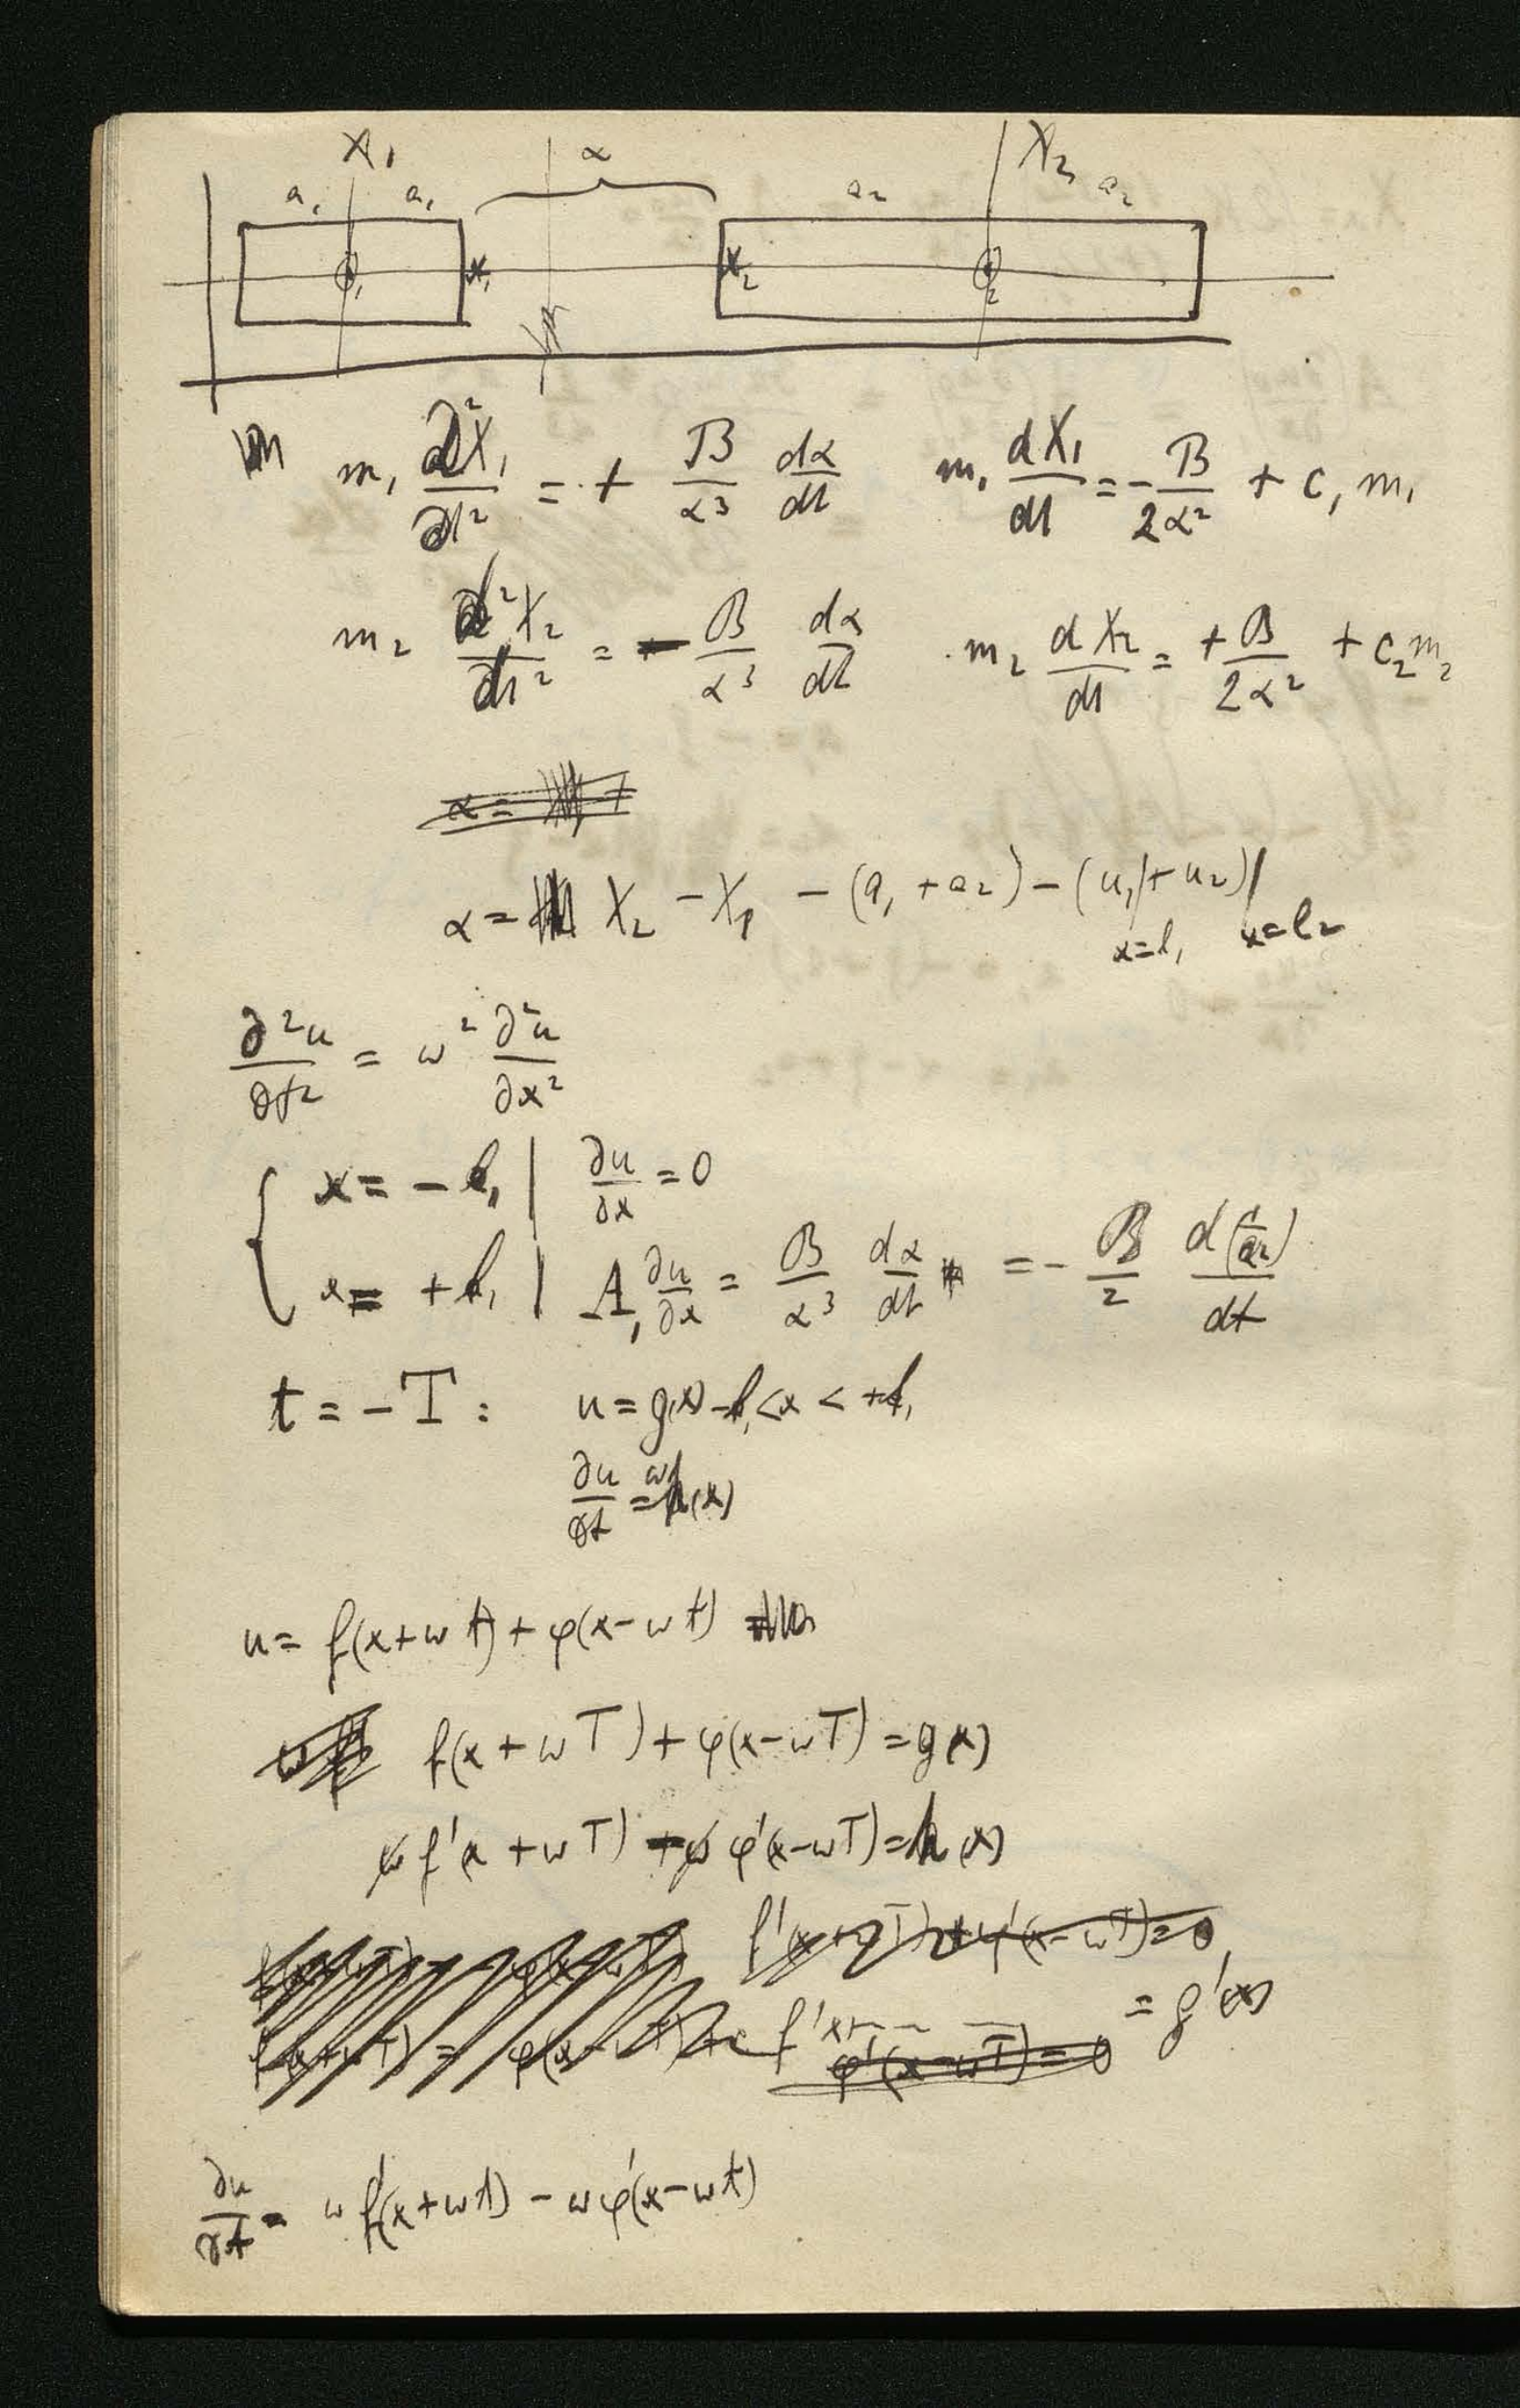 X₁ α X₂
a₁ a₁ a₂ a₂
O₁ x₁ x₂ O₂
m₁ d²X₁/dt² = + B/α³ dα/dt m₁ dX₁/dt = - B/2α² + c₁ m₁
m₂ d²X₂/dt² = - B/α³ dα/dt m₂ dX₂/dt = + B/2α² + c₂ m₂
α =
α = X₂ - X₁ - (a₁ + a₂) - (u₁| + u₂)|
x=l₁ x=l₂
∂²u/∂t² = ω² ∂²u/∂x²
{ x = - l₁ | ∂u/∂x = 0
x = + l₁ | A₁ ∂u/∂x = B/α³ dα/dt = - B/2 d(1/α²)/dt
t = - T : u = g(x) -l₁ < x < +l₁
∂u/∂t = ω h(x)
u = f(x+ωt) + φ(x-ωt)
f(x+ωT) + φ(x-ωT) = g(x)
ω f'(x+ωT) - ω φ'(x-ωT) = h(x)
f'(x+ωT) + φ'(x-ωT) = 0
f'x+ — — — = g'(x)
φ'(x-ωT) = 0
∂u/∂t = ω f'(x+ωt) - ω φ'(x-ωt)